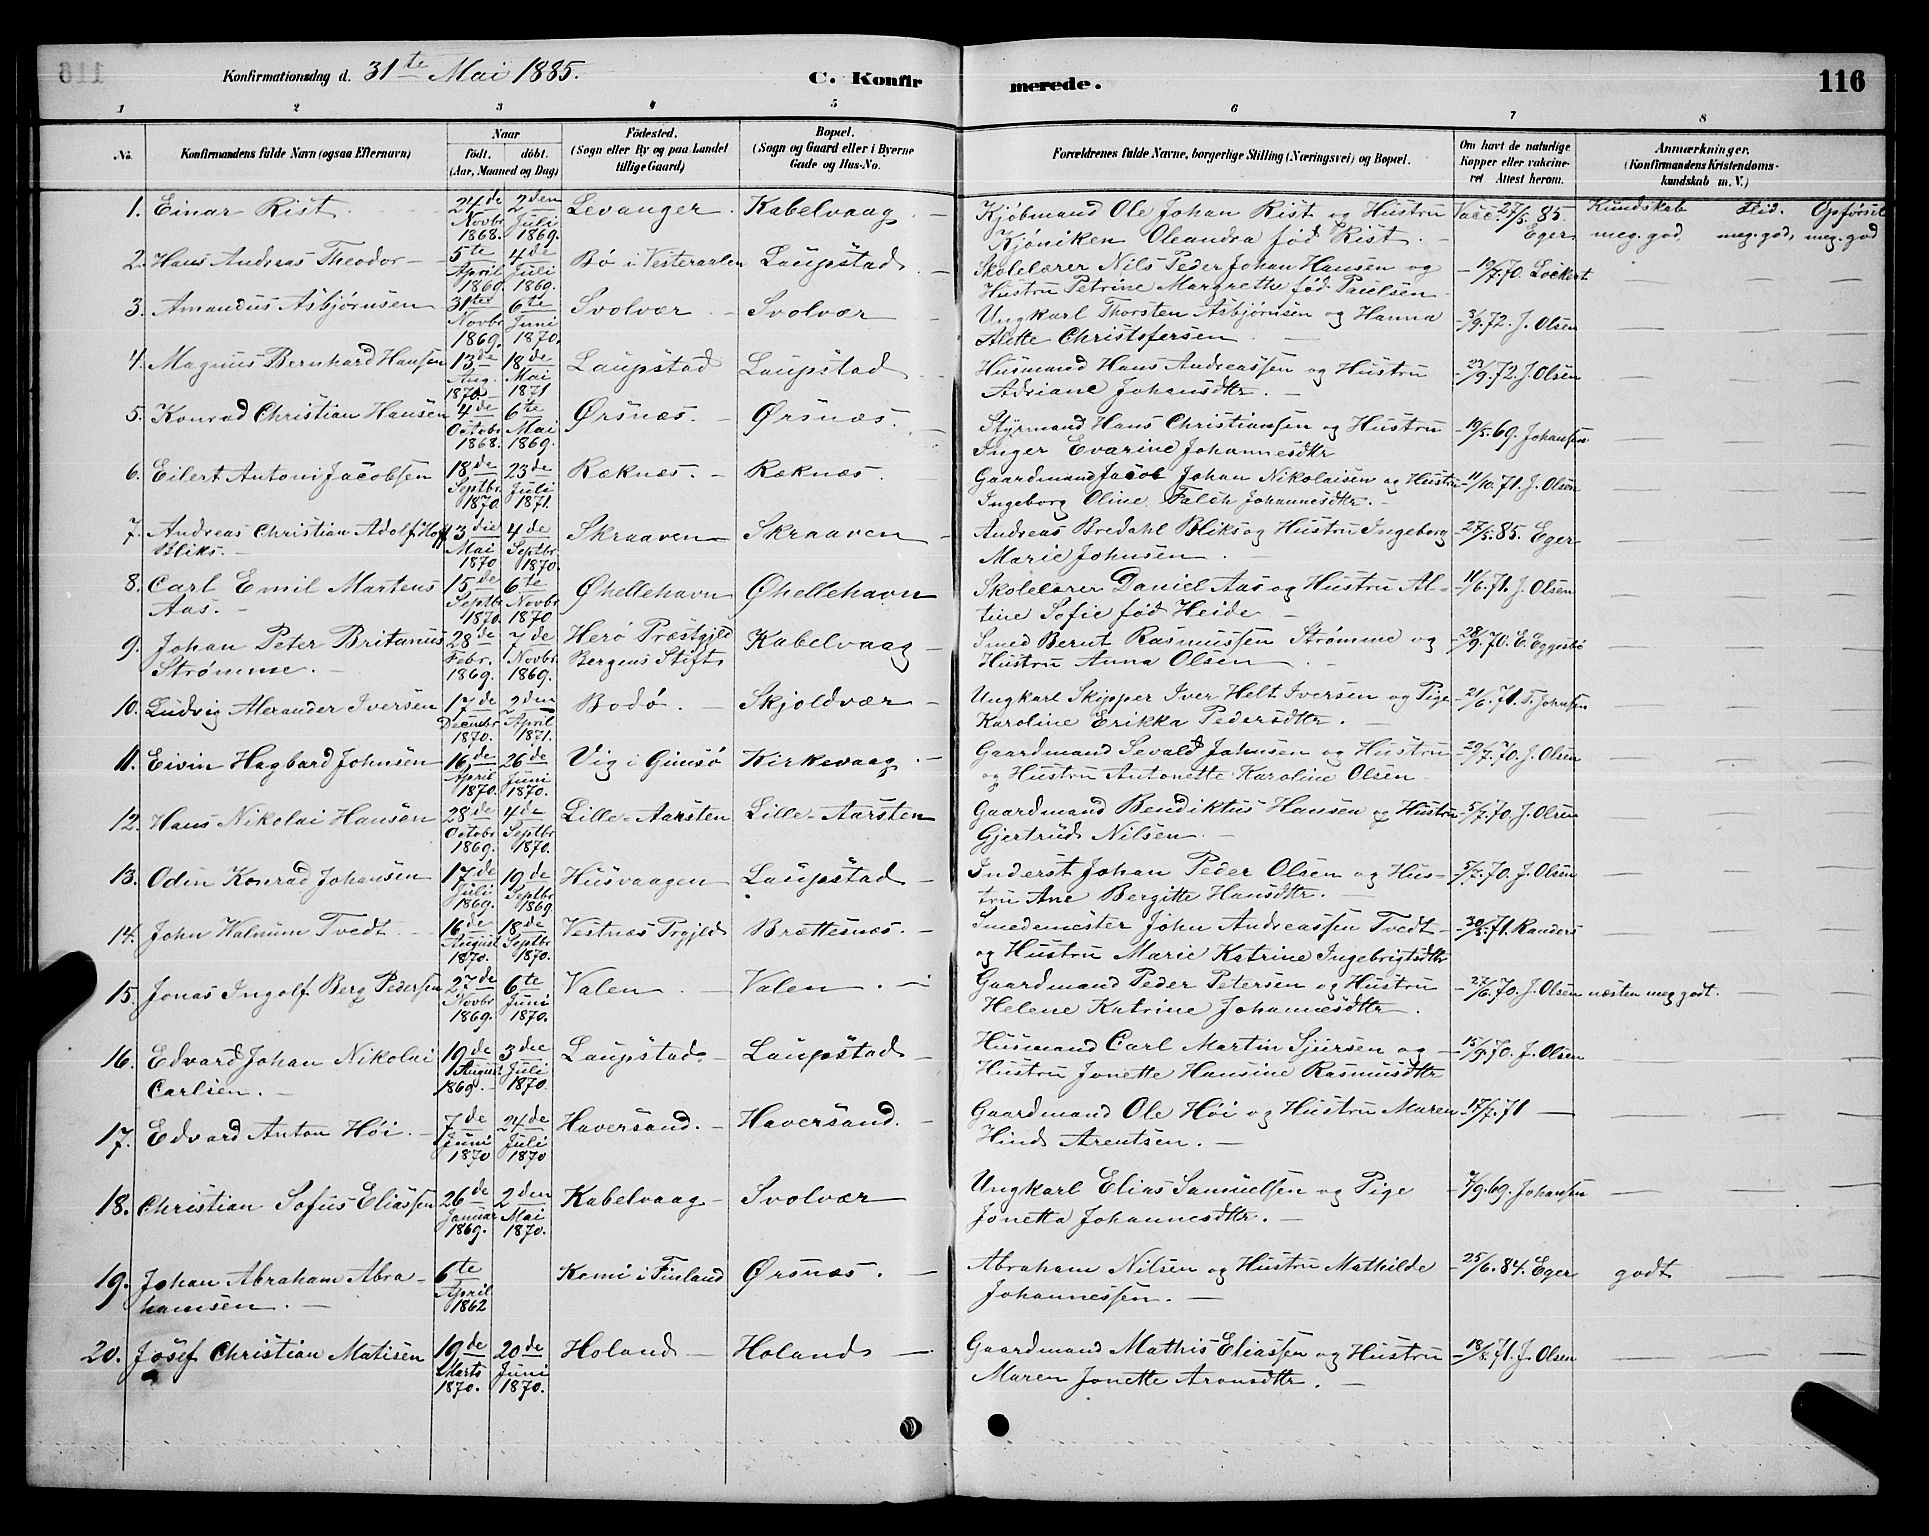 Konfirmationsdag d. 31te Mai 1885. C. Konfirmerede. 116
1 2 3 4 5 6 7 8
No. Konfirmandens fulde Navn (ogsaa Efternavn) Naar födt. döbt. (Aar, Maaned og Dag) Födested. (Sogn eller By og paa Landet tillige Gaard) Bopæl. (Sogn og Gaard eller i Byerne Gade og Hus-No. Forældrenes fulde Navne, borgerlige Stilling (Næringsvei) og Bopæl. Om havt de naturlige Kopper eller vakcineret Attest herom. Anmærkninger. (Konfirmandens Kristendomskundskab m. V.)
Kundskab Flid. Opførsel
1. Einar Rist 24de Novbr 1868. 2den Juli 1869. Levanger. Kabelvaag Kjøbmand Ole Johan Rist og Hustru Kjøniken Oleandra fød Rist. Vacc 27/5. 85. Eger meg. god meg. god, meg. god
2. Hans Andreas Theodor 5te April 1869 4de Juli 1869. Bø i Vesteraalen Laupstad Skolelærer Nils Peder Johan Hansen og Hustru Petrine Margrethe fød Paulsen 19/7. 70. Lockert
3. Amandus Asbjørnsen 31te Novbr 1869. 6te Juni 1870. Svolvær Svolvær Ungkarl Thorsten Asbjørnsen og Hanna Alette Christofersen 3/9. 72. J. Olsen
4. Magnus Bernhard Hansen 13de Aug. 1870 18de Mai 1871 Laupstad Laupstad Husmand Hans Andreassen og Hustru Adriane Johansdtr. 23/9. 72. J. Olsen
5. Konrad Christian Hansen 4de Octobr 1868. 6te Mai 1869. Ørsnæs. Ørsnæs. Styrmand Hans Christiansen og Hustru Inger Evarine Johannesdtr 19/5. 69. Johansen
6. Eilert Antoni Jacobsen 18de Septbr 1870 23de Juli 1871. Ræknæs. Ræknæs. Gaardmand Jacob Johan Nikolaisen og Hustru Ingeborg Oline Falch Johannesdtr. 11/10. 71. J. Olsen
7. Andreas Christian Adolf Hoff Bliks. 3die Mai 1870 4de Septbr 1870. Skraaven Skraaven Andreas Bredahl Bliks og Hustru Ingeborg Marie Johnsen 27/5. 85. Eger
8. Carl Emil Martens Aas. 15de Septbr 1870. 6te Novbr 1870 Øhellehavn Øhellehavn Skolelærer Daniel Aas og Hustru Altine Sofie fød Heide 11/6. 71. J. Olsen
9. Johan Peter Britanus Strømme. 28de Febr. 1869. 7de Novbr 1869. Herø Præstgjeld Bergens Stift Kabelvaag Smed Bernt Rasmussen Strømme og Hustru Anna Olsen 28/9. 70. E. Eggesbø
10. Ludvig Alexander Iversen 17de Decembr 1870. 2den April 1871. Bodø. Skjoldvær Ungkarl Skipper Iver Helt Iversen og Pige Karoline Erikka Pedersdtr. 21/6. 71. T. Johnsen
11. Eivin Hagbard Johnsen 16de April 1870. 26de Juni 1870. Vig i Gimsø Kirkevaag Gaardmand Sevald Johnsen og Hustru og Hustru Antonette Karoline Olsen 29/7. 70. J. Olsen
12. Hans Nikolai Hansen 28de Octobr 1869. 4de Septbr 1870. Lille-Aarsten Lille-Aarsten Gaardmand Bendiktus Hansen og Hustru Gjertrud Nilsen. 5/7. 70. J. Olsen
13. Odin Konrad Johansen 17de Juli 1869. 19de Septbr 1869 Husvaagen Laupstad Inderst Johan Peder Olsen og Hustru Ane Bergitte Hansdtr. 5/7. 70. J. Olsen
14. John Halnum Tvedt 16de August 1870. 18de Septbr 1870. Vestnæs Prgjeld Brættesnæs. Smedemester John Andreassen Tvedt og Hustru Marie Katrine Ingebrigtsdtr 30/8. 71. Randers
15. Jonas Ingolf Berg Pedersen 27de Novbr 1869. 6te Juni 1870. Valen Valen. Gaardmand Peder Petersen og Hustru Helene Katrine Johannesdtr. 27/6. 70. J. Olsen næsten meg godt.
16. Edvard Johan Nikolai Carlsen. 19de August 1869. 3die Juli 1870. Laupstad Laupstad Husmand Carl Martin Sjursen og Hustru Jonette Hansine Rasmusdtr 15/9. 70. J. Olsen
17. Edvard Anton Høi 7de Juni 1870 24de Juli 1870 Haversand. Haversand. Gaardmand Ole Høi og Hustru Maren Hind Arentsen. 17/7. 71
18. Christian Sofus Eliassen 26de Januar 1869. 2den Mai 1870. Kabelvaag Svolvær Ungkarl Elias Samuelsen og Pige Jonetta Johannesdtr. 7/9. 69. Johansen
19. Johan Abraham Abrahamsen. 6te April 1862 Kemi i Finland Ørsnæs. Abraham Nilsen og Hustru Mathilde Johannessen. 25/6. 84. Eger godt
20. Josef Christian Matisen 19de Marts 1870. 20de Juni 1870. Holand Holand Gaardmand Mathis Eliassen og Hustru Maren Jonette Aronsdtr. 18/8. 71. J. Olsen